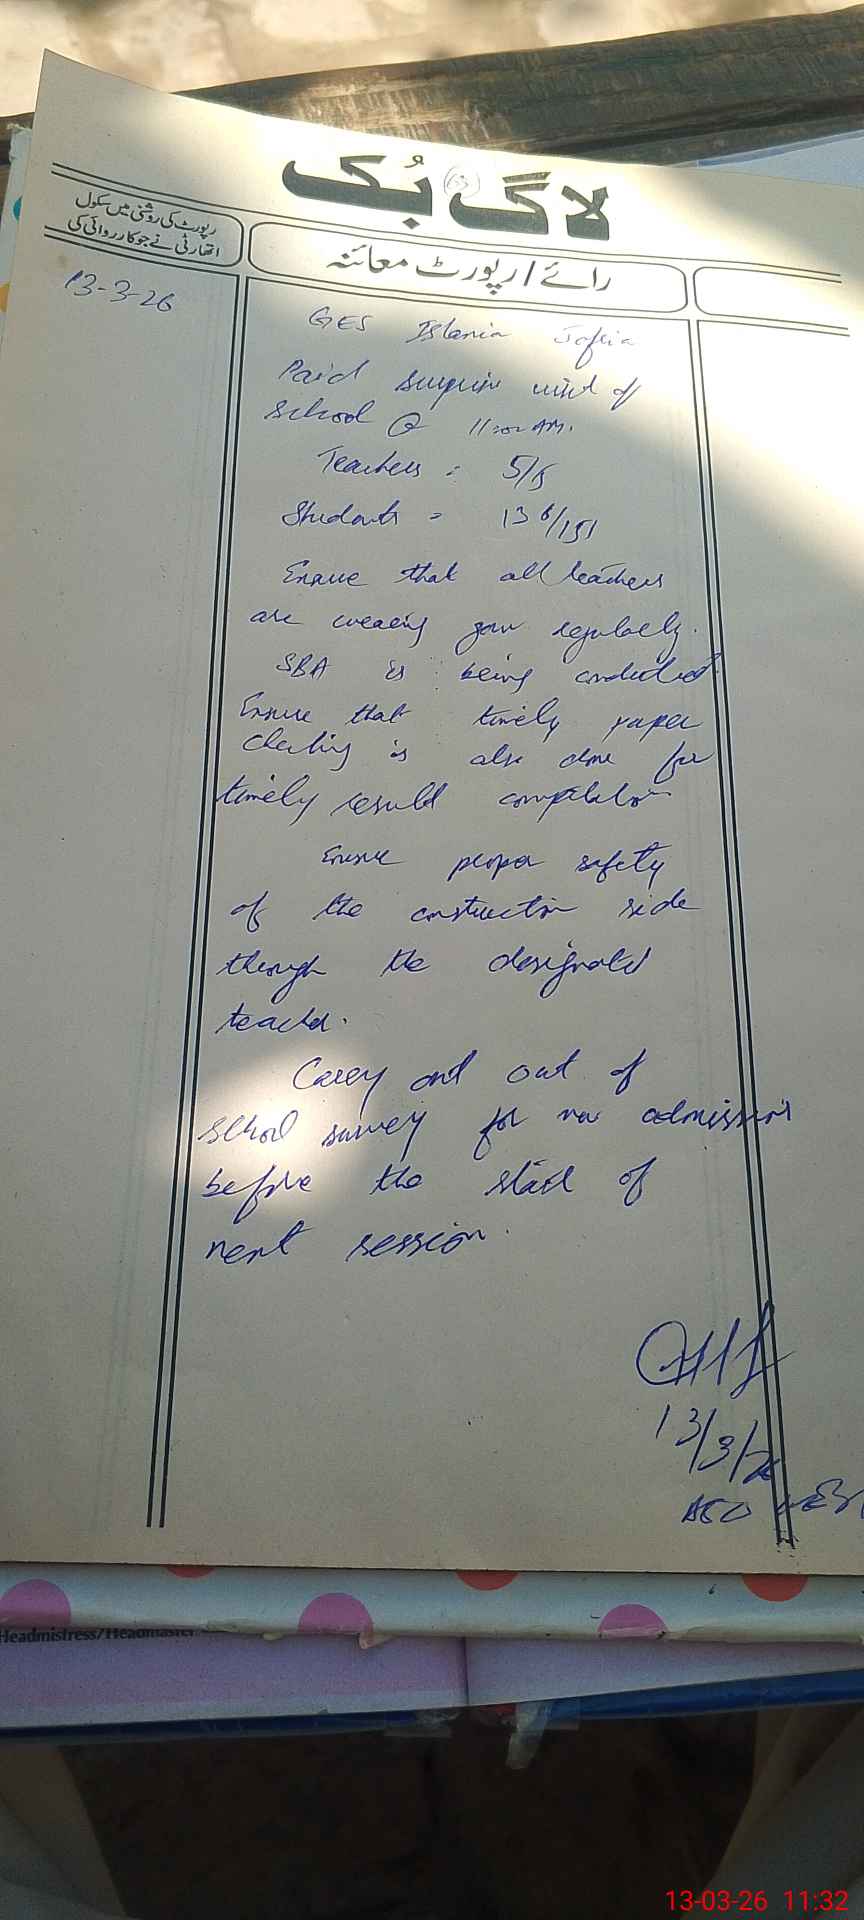 لاگ بُک
رپورٹ کی روشنی میں سکول
اتھارٹی نے جو کارروائی کی
رائے / رپورٹ معائنہ
13-3-26
GES Islamia Jafria
Paid surprise visit of
school @ 11:00 AM.
Teachers = 5/5
Students = 136/151
Ensure that all teachers
are wearing gown regularly.
SBA is being conducted
Ensure that timely paper
checking is also done for
timely result compilation
Ensure proper safety
of the construction side
through the designated
teacher.
Carry out out of
school survey for new admissions
before the start of
next session.
13/3/26
AEO
Headmistress/Headmaster
13-03-26 11:32